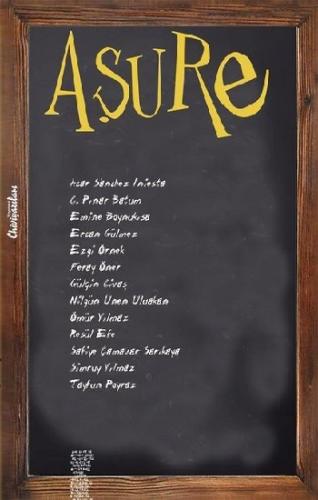 AŞURE
Azar Sanchez Iniesta
G. Pınar Batum
Emine Boynukısa
Ercan Gülmez
Ezgi Örnek
Feray Öner
Gülçin Civaş
Nilgün Unan Uluakan
Ömür Yılmaz
Resül Efe
Safiye Çamavar Sarıkaya
Simruy Yılmaz
Taylun Poyraz